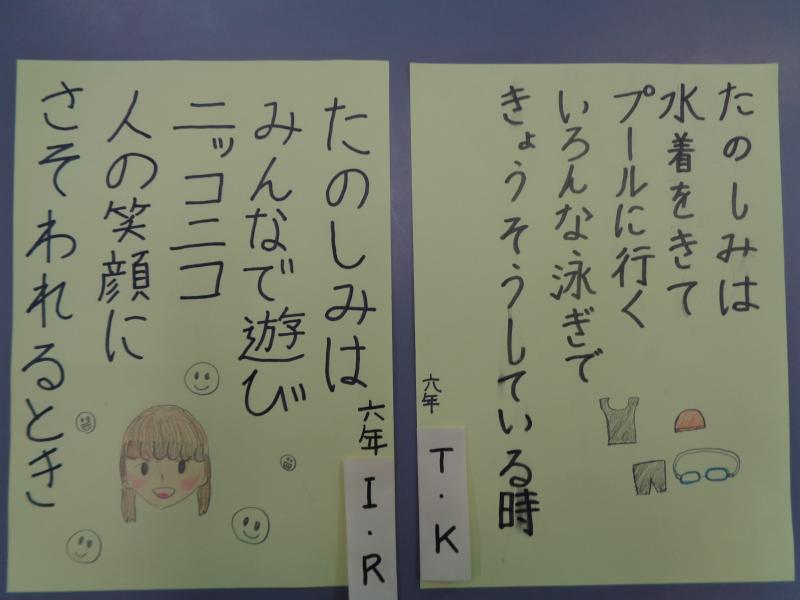 たのしみは
水着をきて
プールに行く
いろんな泳ぎで
きょうそうしている時
六年
T.K
たのしみは
みんなで遊び
ニッコニコ
人の笑顔に
さそわれるとき
六年
I.R